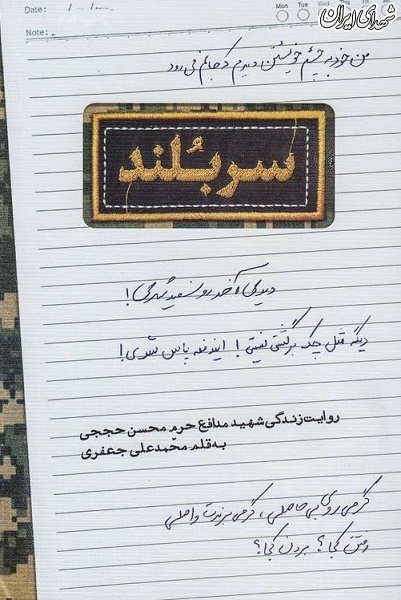 Date: / /
Mon Tue Wed Thu Fri
شهدای ایران
Note:
من خود به چشم خویشتن دیدم که جانم می رود
سربُلند
دیدی آخر رو سفید شدی!
دیگه مثل چک برگشتی نیستی! ایندفعه پاس شدی!
روایت زندگی شهید مدافع حرم محسن حججی
به قلم محمّدعلی جعفری
گر می روی بی حاصلی، گر می برندت واصلی
رفتن کجا؟ بردن کجا؟